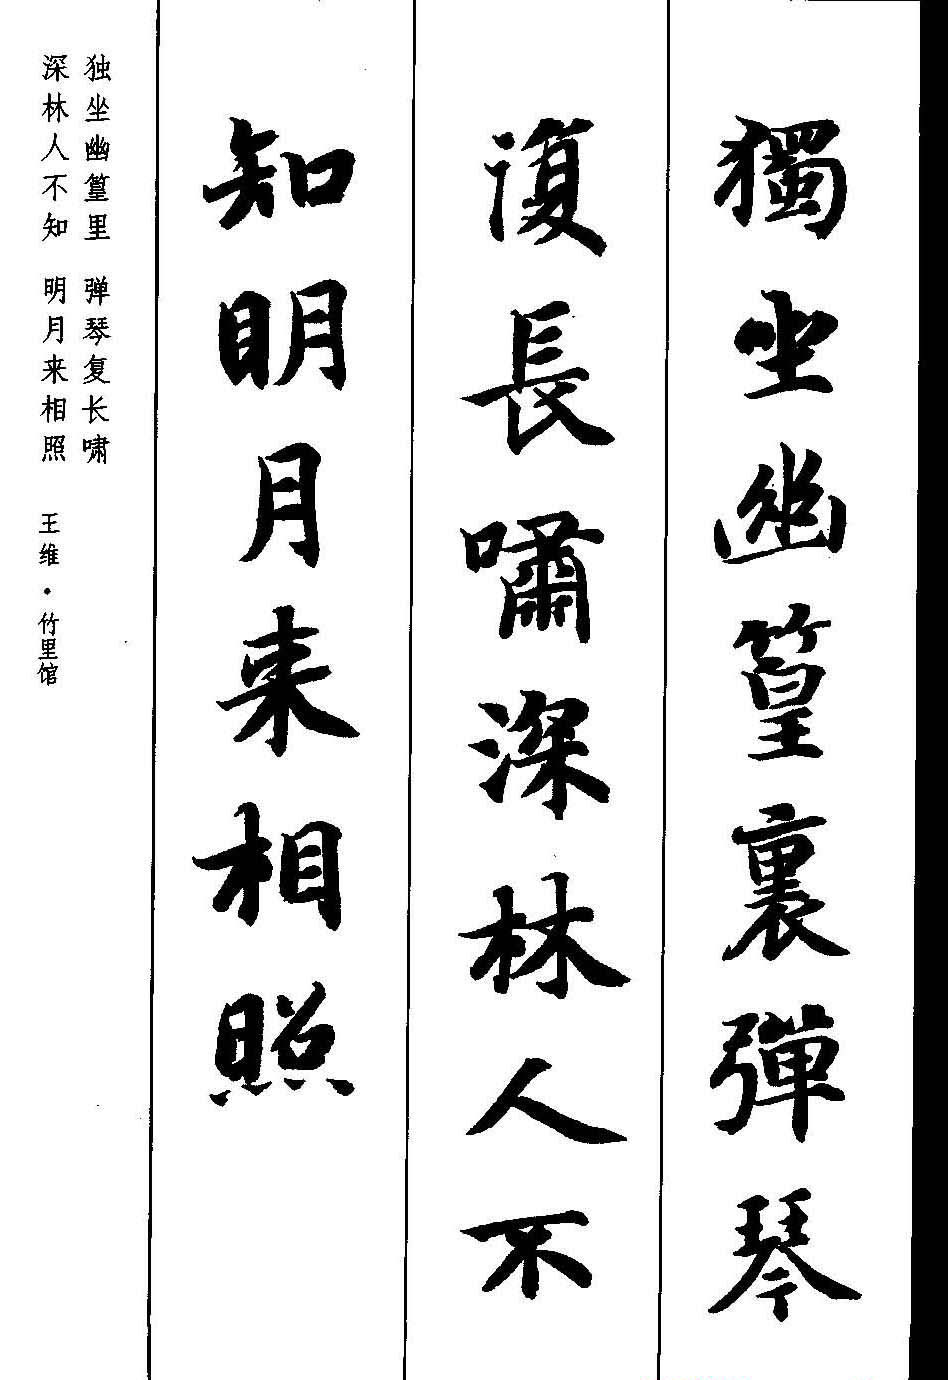 獨坐幽篁裏彈琴
復長嘯深林人不
知明月来相照
独坐幽篁里 弹琴复长啸
深林人不知 明月来相照 王维·竹里馆